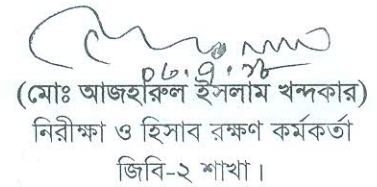 ০৮.৭.১৮
(মোঃ আজহারুল ইসলাম খন্দকার)
নিরীক্ষা ও হিসাব রক্ষণ কর্মকর্তা
জিবি-২ শাখা।